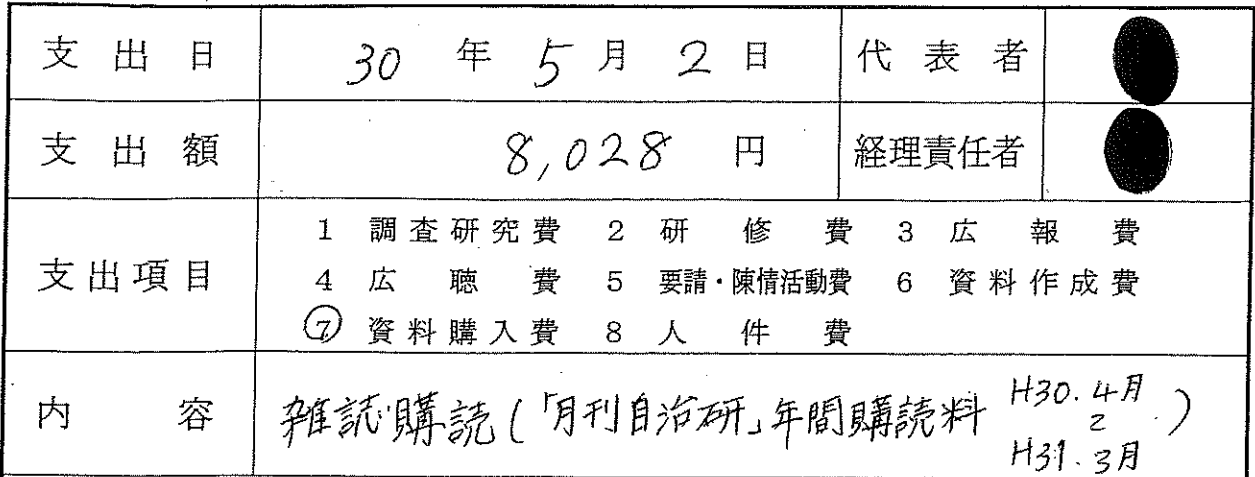 支出日 30年5月2日 代表者
支出額 8,028円 経理責任者
支出項目
1 調査研究費 2 研修費 3 広報費
4 広聴費 5 要請・陳情活動費 6 資料作成費
⑦ 資料購入費 8 人件費
内容 雑誌購読(「月刊自治研」年間購読料 H30.4月
~
H31.3月)